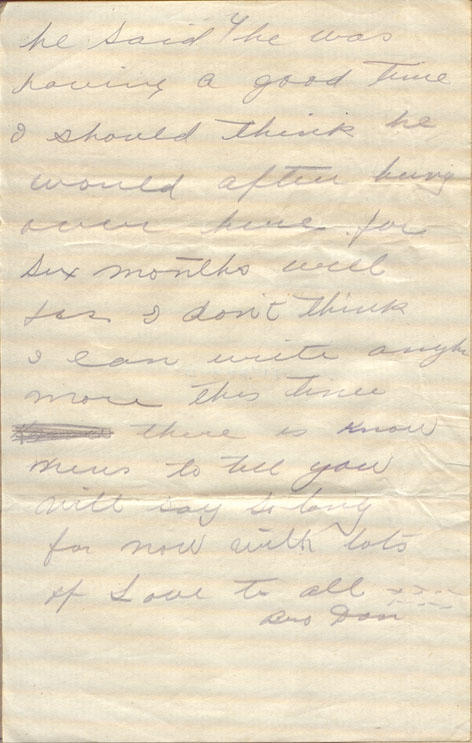 he said he was
having a good time
I should think he
would after being
over here for
six months well
I don't think
I can write
more this time
there is know
news to tell you
will say so long
for now with lots
of Love to all xxxx
Bro Don